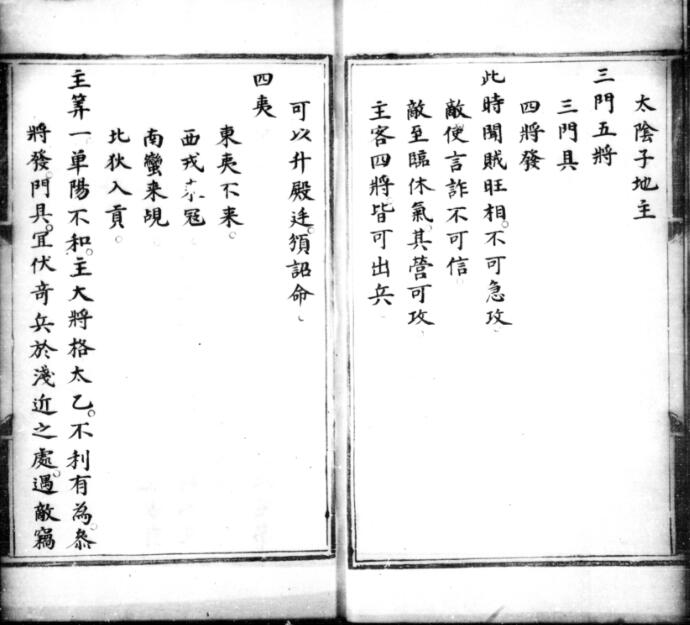 太陰子地主
三門五將
三門具
四將發
此時聞賊旺相。不可急攻、
敵使言詐不可信。
敵至臨休氣、其營可攻、
主客四將皆可出兵、
可以升殿廷。頒詔命、
四夷
東夷不来。
西戎 冦
南蠻来覘
北狄入貢。
主筭一單陽不和。主大將格太乙。不利有為。叅
將發。門具。宜伏奇兵於淺近之處。遇敵竊